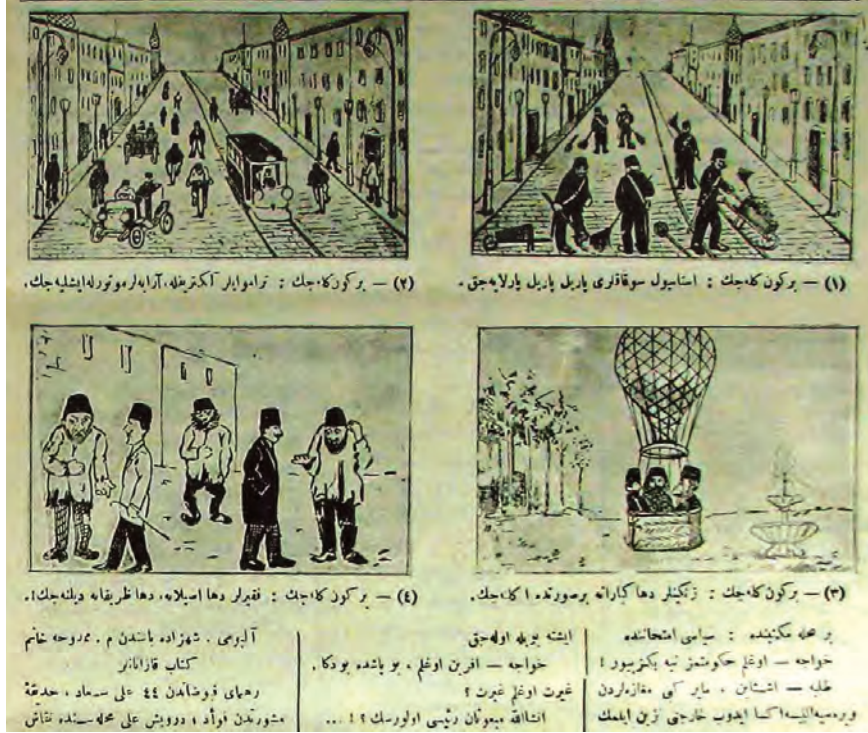 (١) — بركون كله‌جك : استانبول سوقاقلری پاریل پاریل پارلایه‌جق .
(٢) — بركون كله‌جك : تراموایلر آلكتریقله، آرابه‌لر موتورله ایشلیه‌جك.
(٣) — بركون كله‌جك : زنكینلر دها كبارانه برصورتده ا كله‌جك.
(٤) — بركون كله‌جك : فقیرلر دها اصیلانه، دها ظریفانه دیلنه‌جك!.
بر محله مكتبنده : سیاسی امتحاننده
خواجه — اوغلم حكومتمز نیه بكزییور !
طلبه — اشتاین ، مایر كبی مغازه‌لردن
ایدوب خارجی تزین ایلمك
ایشته بویله اوله‌جق
خواجه — افرین اوغلم ، بو یاشده بو دكا .
غیرت اوغلم غیرت ؟
انشاالله مبعوثان رئیسی اولورسك ؟ ! ...
شهزاده باشندن م . ممدوحه خانم
كتاب قازانانلر
رهنمای فیوضاتدن ٤٤ علی سعاد ، حدیقۀ
مشورتدن فؤاد ، درویش علی محله‌سنده نقاش